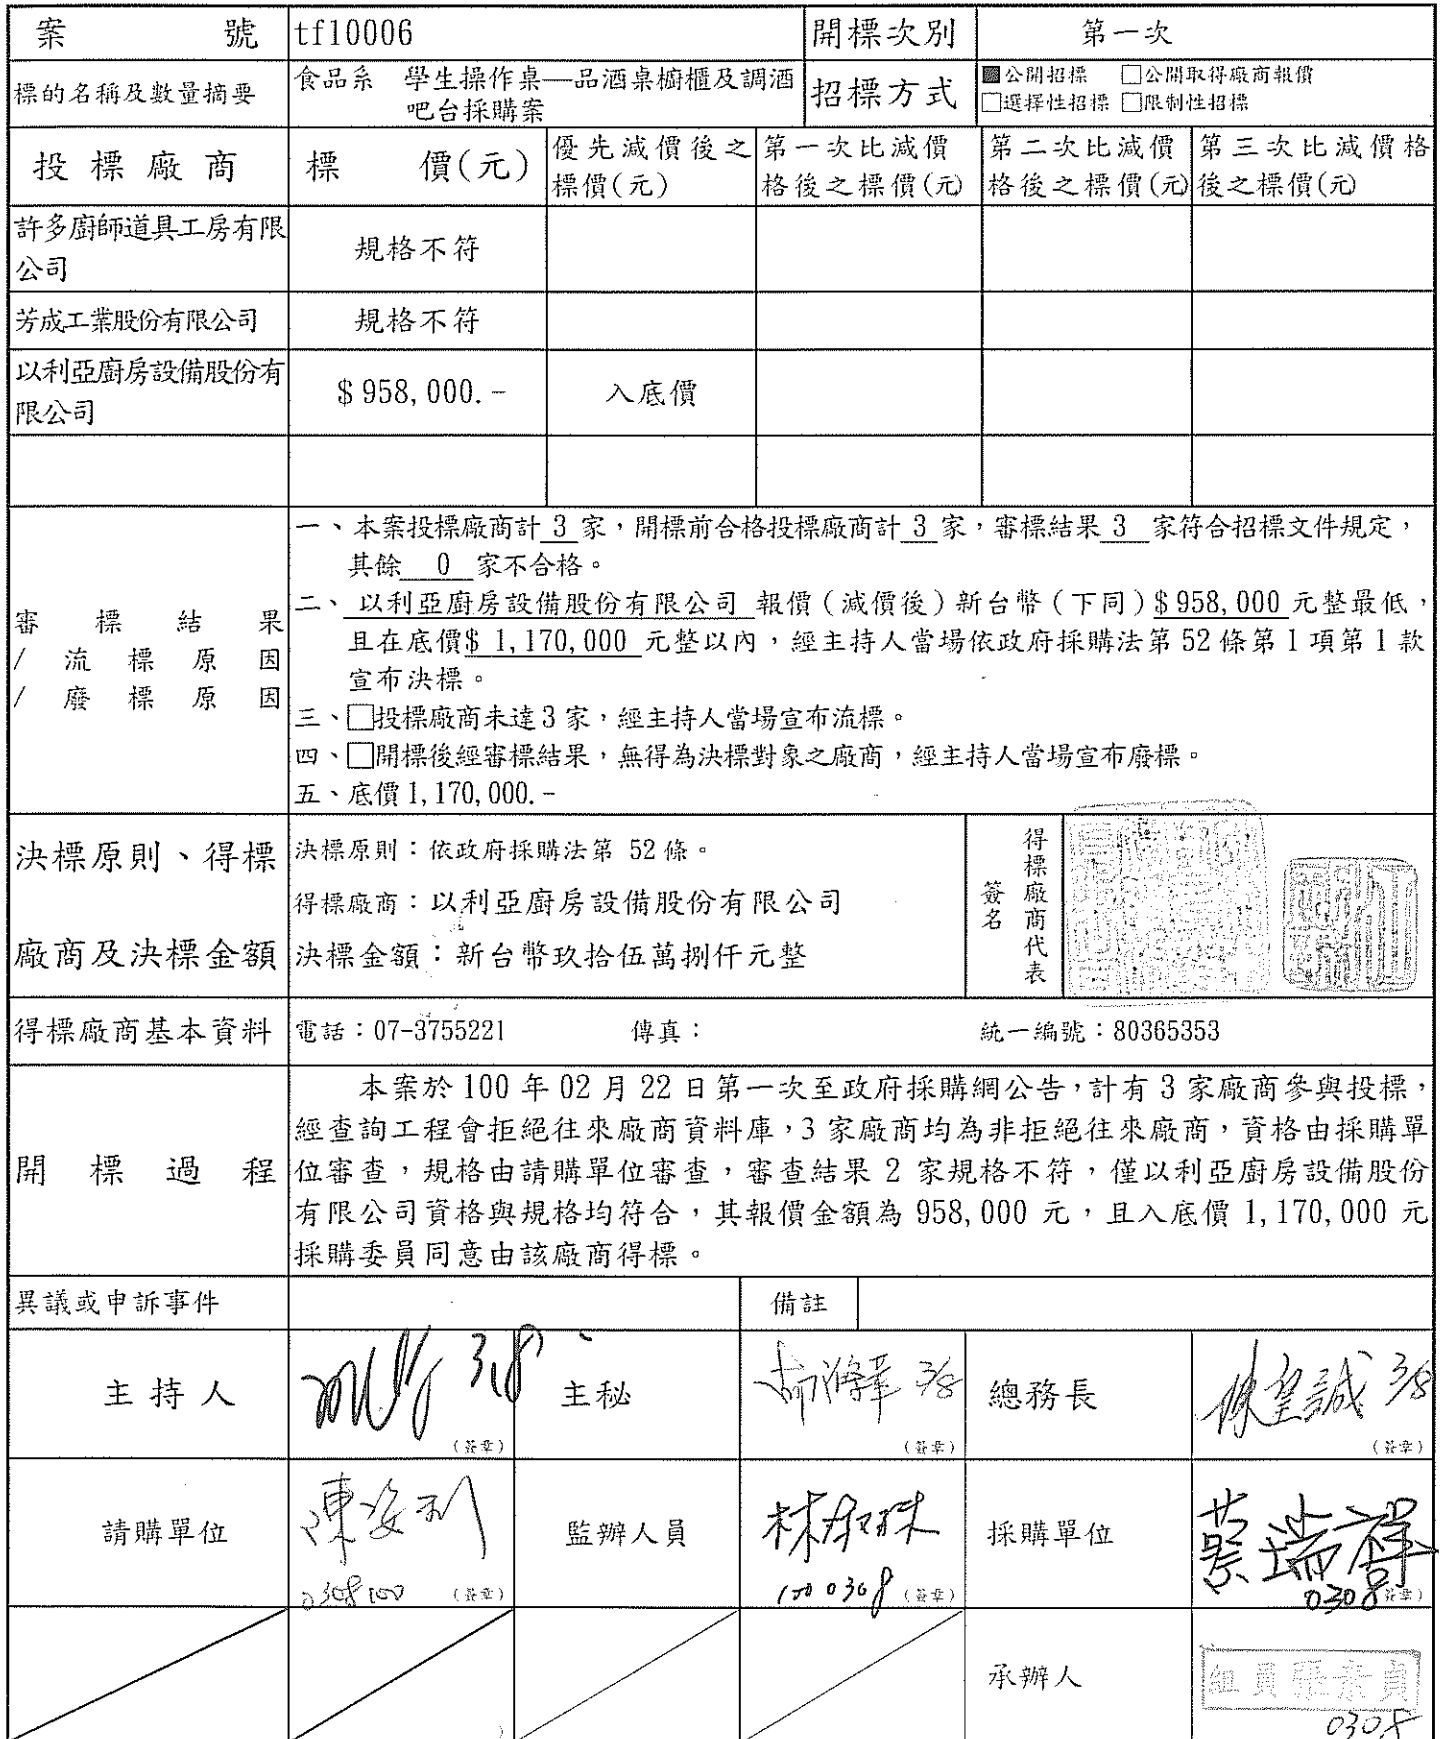 案 號 tf10006 開標次別 第一次
標的名稱及數量摘要 食品系 學生操作桌—品酒桌櫥櫃及調酒 招標方式 ■公開招標 □公開取得廠商報價
吧台採購案 □選擇性招標 □限制性招標
投標廠商 標 價(元) 優先減價後之 第一次比減價 第二次比減價 第三次比減價格
標價(元) 格後之標價(元) 格後之標價(元) 後之標價(元)
許多廚師道具工房有限
公司 規格不符
芳成工業股份有限公司 規格不符
以利亞廚房設備股份有
限公司 $958,000.- 入底價
審標結果
/流標原因
/廢標原因
一、本案投標廠商計 3 家，開標前合格投標廠商計 3 家，審標結果 3 家符合招標文件規定，
其餘 0 家不合格。
二、 以利亞廚房設備股份有限公司 報價（減價後）新台幣（下同）$958,000 元整最低，
且在底價$ 1,170,000 元整以內，經主持人當場依政府採購法第 52 條第 1 項第 1 款
宣布決標。
三、□投標廠商未達 3 家，經主持人當場宣布流標。
四、□開標後經審標結果，無得為決標對象之廠商，經主持人當場宣布廢標。
五、底價 1,170,000.-
決標原則、得標
廠商及決標金額
決標原則：依政府採購法第 52 條。
得標廠商：以利亞廚房設備股份有限公司
決標金額：新台幣玖拾伍萬捌仟元整
得標廠商代表
簽名
得標廠商基本資料 電話：07-3755221 傳真： 統一編號：80365353
開標過程
本案於 100 年 02 月 22 日第一次至政府採購網公告，計有 3 家廠商參與投標，
經查詢工程會拒絕往來廠商資料庫，3 家廠商均為非拒絕往來廠商，資格由採購單
位審查，規格由請購單位審查，審查結果 2 家規格不符，僅以利亞廚房設備股份
有限公司資格與規格均符合，其報價金額為 958,000 元，且入底價 1,170,000 元
採購委員同意由該廠商得標。
異議或申訴事件 備註
主持人 3/8 (簽章) 主秘 3/8 (簽章) 總務長 陳皇誠 3/8 (簽章)
請購單位 陳姿利 0308100 (簽章) 監辦人員 1000308 (簽章) 採購單位 蔡瑞禪 0308 (簽章)
承辦人 組員張 貞 0308